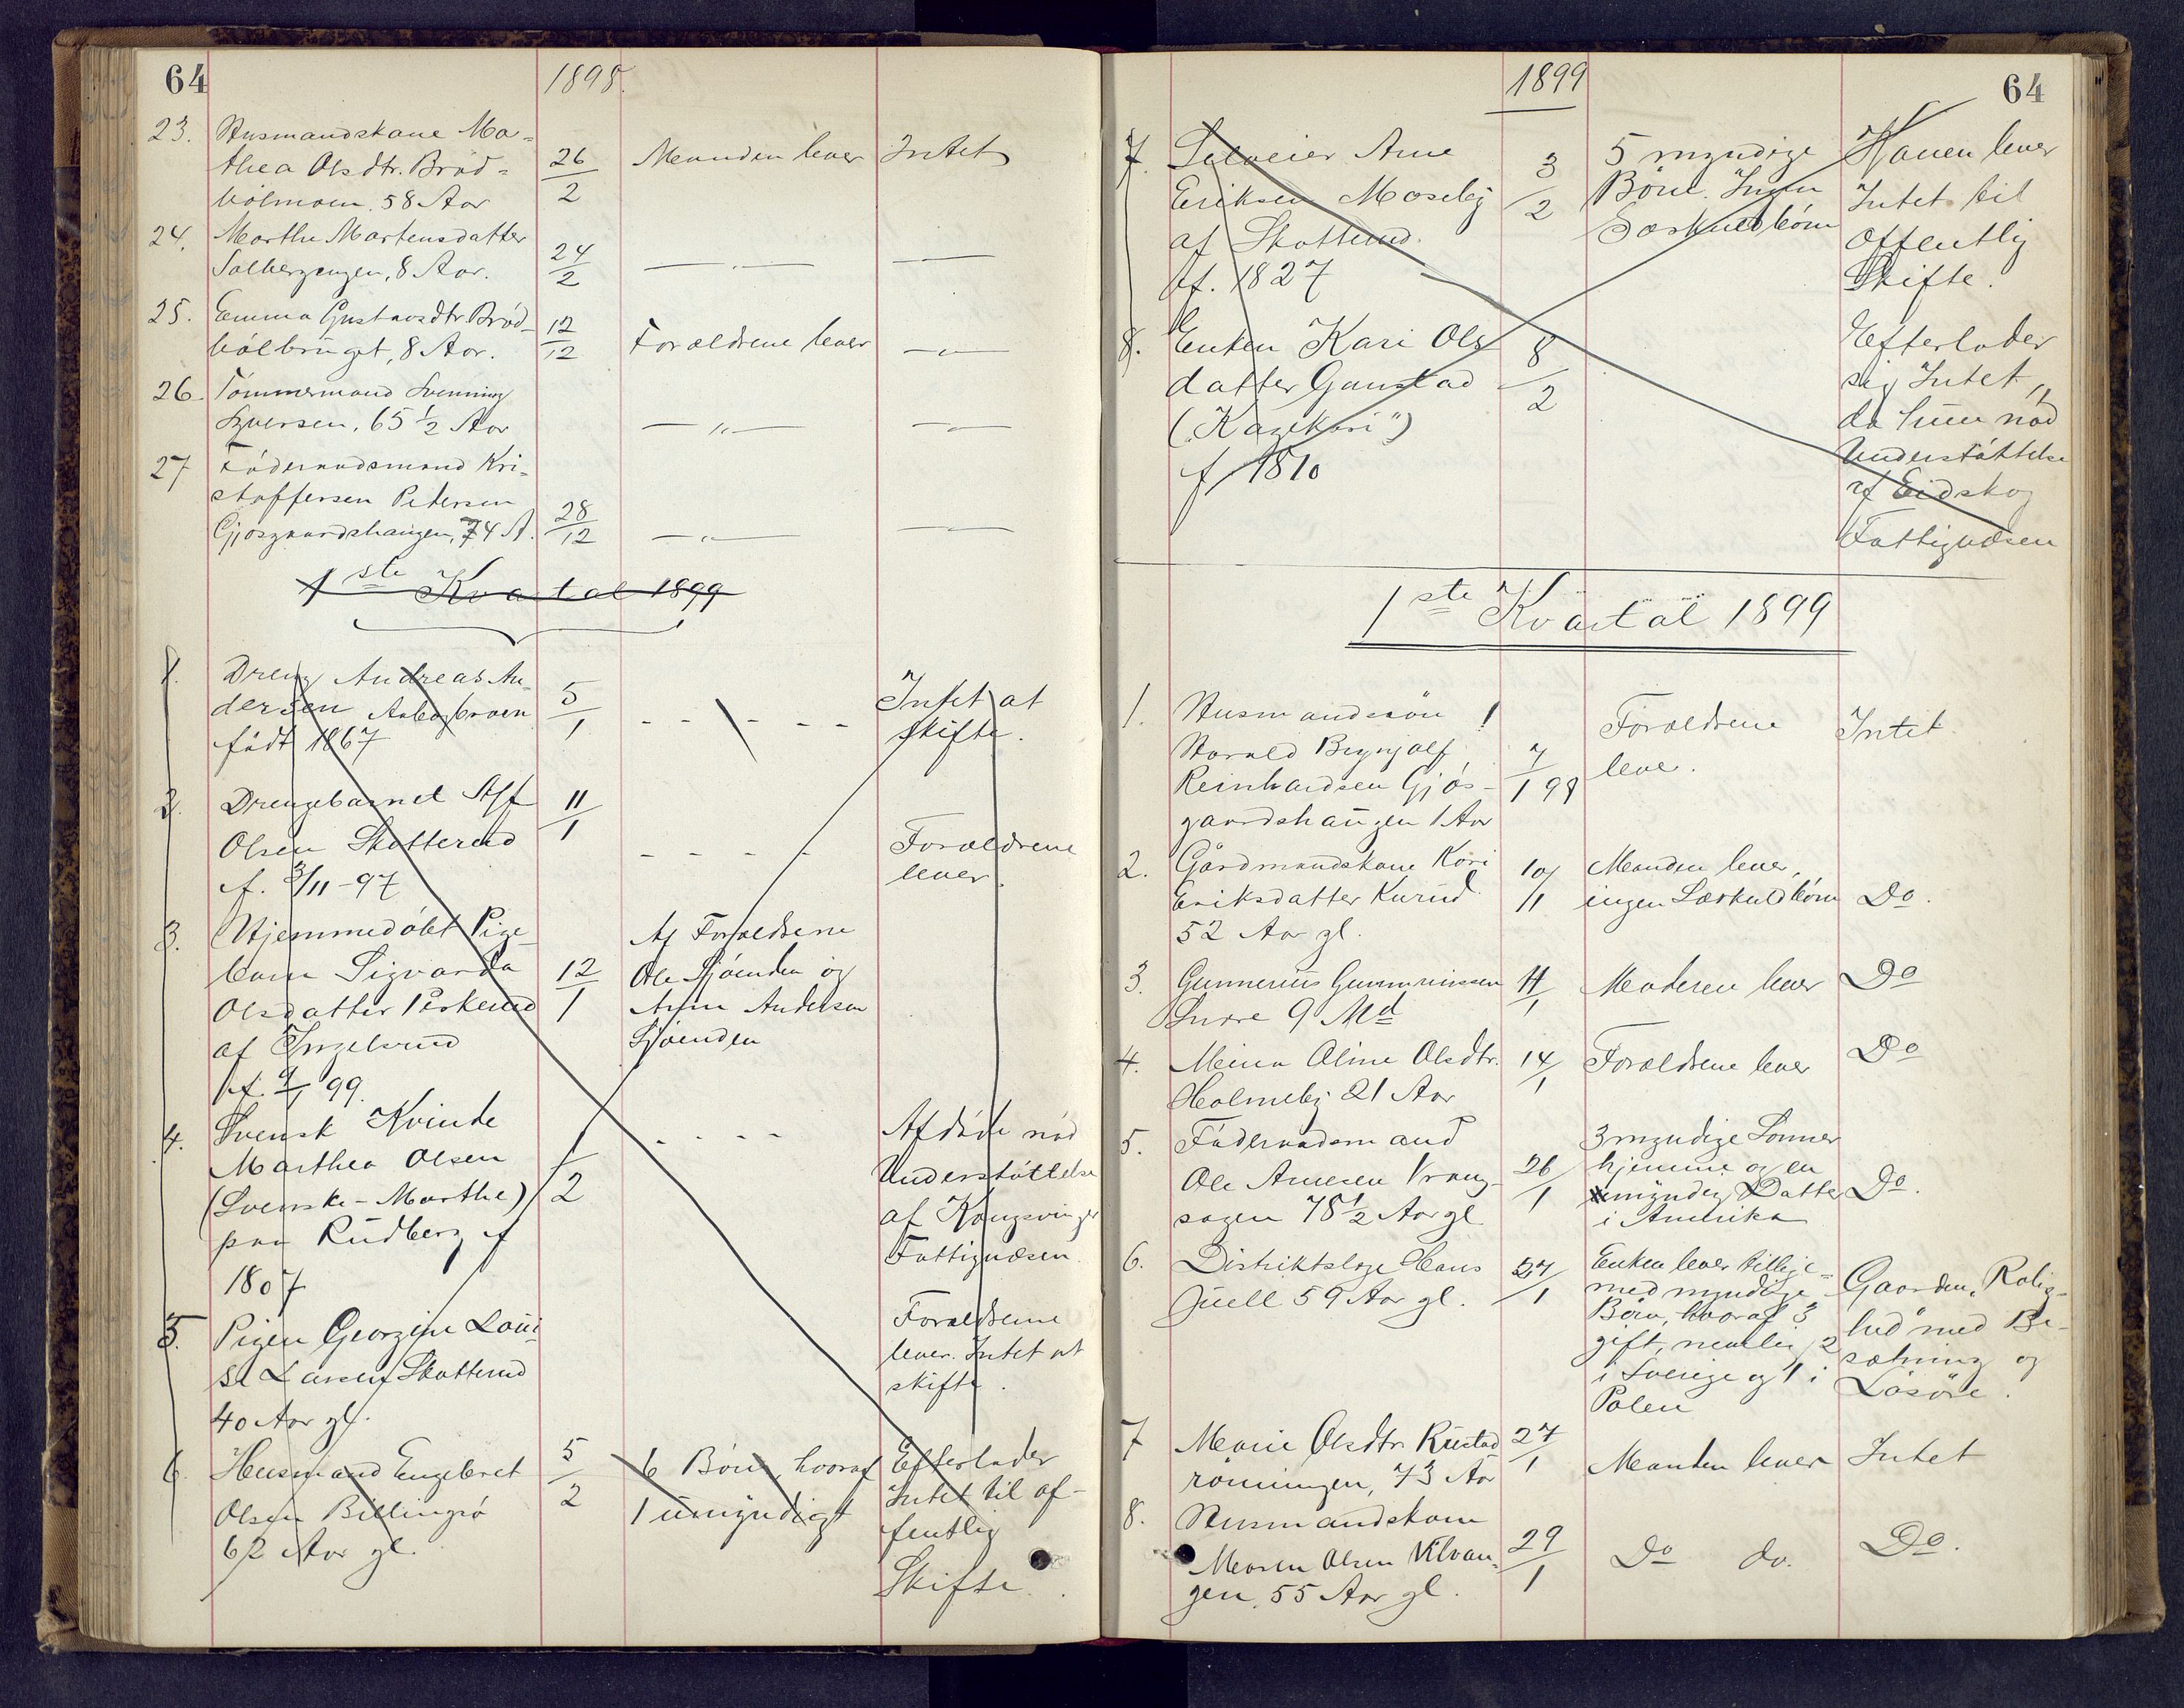 64
1898.
23. Husmandskone Ma-
thea Olsdtr. Bröd-
bölmoen. 58 Aar
26/2
Manden lever
Intet
24. Marthe Martensdatter
Solbergengen, 8 Aar.
24/2
— . —
—
25. Emma Gustavsdtr. Bröd-
bölbruget, 8 Aar.
12/12
Forældrene lever
— „ —
26. Tömmermand Svenning
Syversen, 65 1/2 Aar
— „ —
— „ —
27 Föderaadsmand Kri-
stoffersen Petersen
Gjösgaardshaugen, 74 A.
28/12
— „ —
— „ —
1ste Kvartal 1899
1. Dreng Andreas An-
dersen
födt 1867
5/1
- - - - -
Intet at
skifte.
2. Drengebarnet Alf
Olsen Skotterud
f. 3/11-97
11/1
- - - -
Forældrene
lever
3. Hjemmedöbt Pige-
barn Sigvarda
Olsdatter Perkerud
af Ingelsrud
f. 9/1 99.
12/1
Af Forældrene
Ole Sjöenden og
Anne Andersen
Sjöenden
4. Svensk Kvinde
Marthea Olsen
(Svenske-Marthe)
paa Rudberg f
1807
1/2
- - - -
Afdöde nöd
Understöttelse
af Kongsvinger
Fattigvæsen.
5. Pigen Georgine Loui-
se Larsen Skotterud
40 Aar gl.
Forældrene
lever. Intet at
skifte.
6. Husmand Engebret
Olsen Billingsö
62 Aar gl.
5/2
6 Börn, hvoraf
1 umyndigt
Efterlader
Intet til of-
fentlig
Skifte.
1899
64
7. Selveier Arne
Eriksen Moseby
af Skotterud.
f. 1827
3/2
5 myndige
Börn. Ingen
Særkuldbörn
Konen lever
Intet til
offentlig
Skifte.
8. Enken Kari Ols-
datter Gaustad
("Kagekari")
f. 1810
8/2
Efterlader
sig Intet,
da hun nöd
Understöttelse
af Eidskog
Fattigvæsen
1ste Kvartal 1899
1. Husmandssön !
Harald Brynjolf
Reinhardsen Gjös-
gaardshaugen 1 Aar
7/1 99
Forældrene
lever.
Intet
2. Gårdmandskone Kari
Eriksdatter Kurud
52 Aar gl.
10/1
Manden lever,
ingen Særkuldbörn
Do.
3. Gunnerius Gunneriussen
Snare 9 Md
11/1
Moderen lever
Do
4. Meina Aline Olsdtr.
Holmeby 21 Aar
14/1
Forældrene lever
Do
5. Föderaadsmand
Ole Arnesen Vrang-
sagen 78 1/2 Aar gl
26/1
3 myndige Sönner
hjemme og en
myndig Datter
i Amerika
Do.
6. Distriktslæge Hans
Juell 59 Aar gl.
27/1
Enken lever tillige-
med myndige
Börn, hvoraf 3
gift, nemlig 2
i Sverige og 1 i
Polen
Gaarden Rolig-
hed med Be-
sætning og
Lösöre.
7 Marie Olsdtr. Rustad
rönningen, 73 Aar
27/1
Manden lever
Intet
8. Husmandskone
Maren Olsen Kilvan-
gen, 55 Aar gl.
29/1
Do do.
Do.